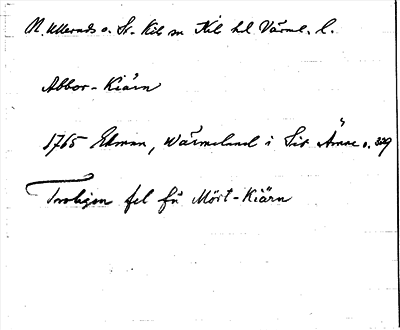 N. Ullerud o. St. Kil sn Kil hd Värml. l.
Abbor-Kiärn
1765 Ekman, Wärmeland i Sit Ämne s. 329
Troligen fel för Mört-Kiärn